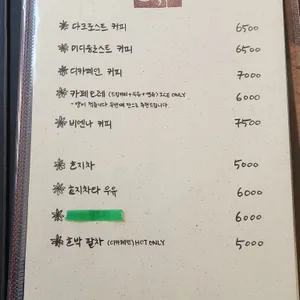 다크로스트 커피 6500
미디움로스트 커피 6500
디카페인 커피 7000
카페오레 (드립커피+우유+연유) ICE ONLY 6000
- 양이 적습니다. 두번째 잔으로 추천드립니다.
비엔나 커피 7500
호지차 5000
호지차라 우유 6000
6000
호박 팥차 (디카페인) HOT ONLY 5000